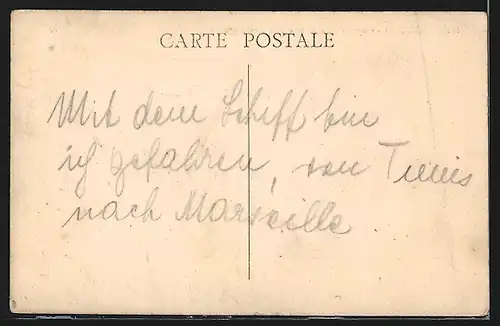 CARTE POSTALE
Mit dem Schiff bin
ich gefahren, von Tunis
nach Marseille.